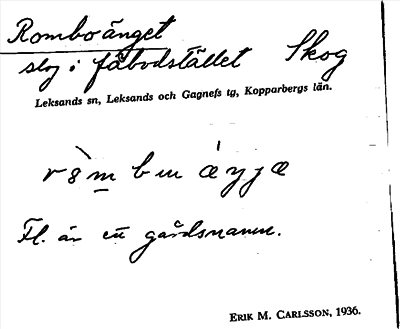 Romboänget
slog i fäbodstället Skog
Leksands sn, Leksands och Gagnefs tg, Kopparbergs län.
Fl. är ett gårdsnamn.
ERIK M. CARLSSON, 1936.